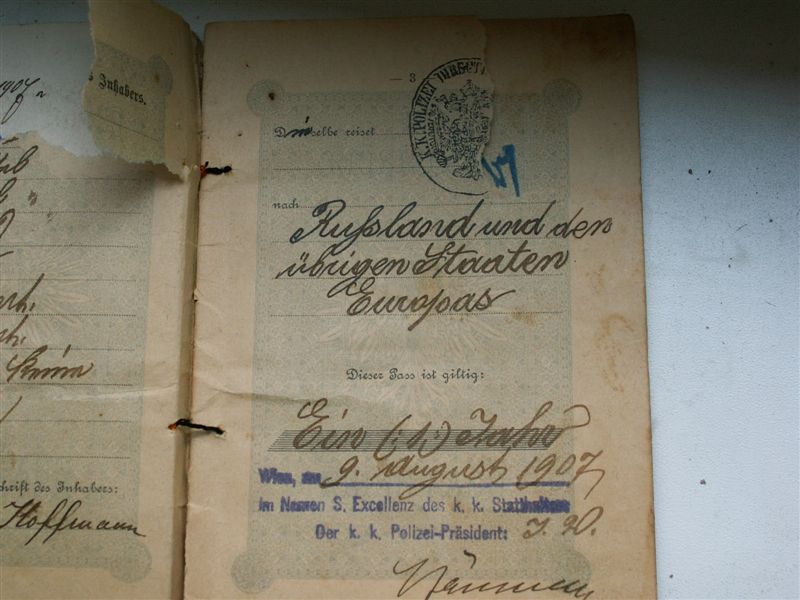 1907
s Inhabers.
Krim
chrift des Inhabers:
Hoffmann
— 3
K.K. POLIZEI DIRECT
Dieselbe reiset
nach
Russland und den
übrigen Staaten
Europas
Dieser Pass ist giltig:
Ein (1) Jahr
Wien, am 9. August 1907
Im Namen S. Excellenz des k. k. Statthalters
Der k. k. Polizei-Präsident: